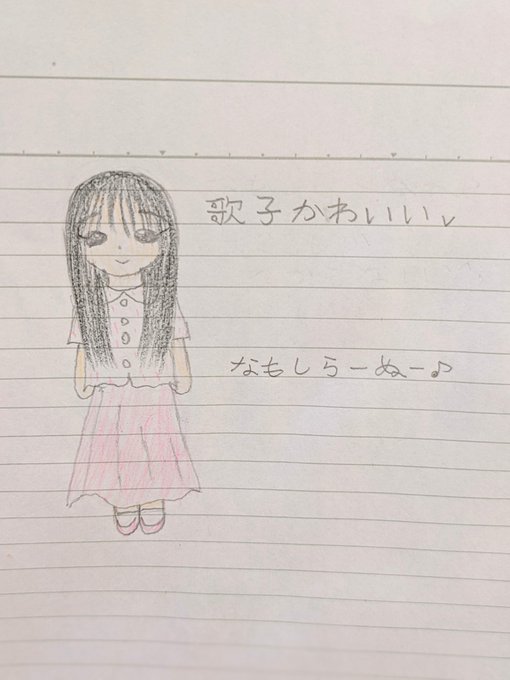 歌子かわいい✓
なもしらーぬー♪